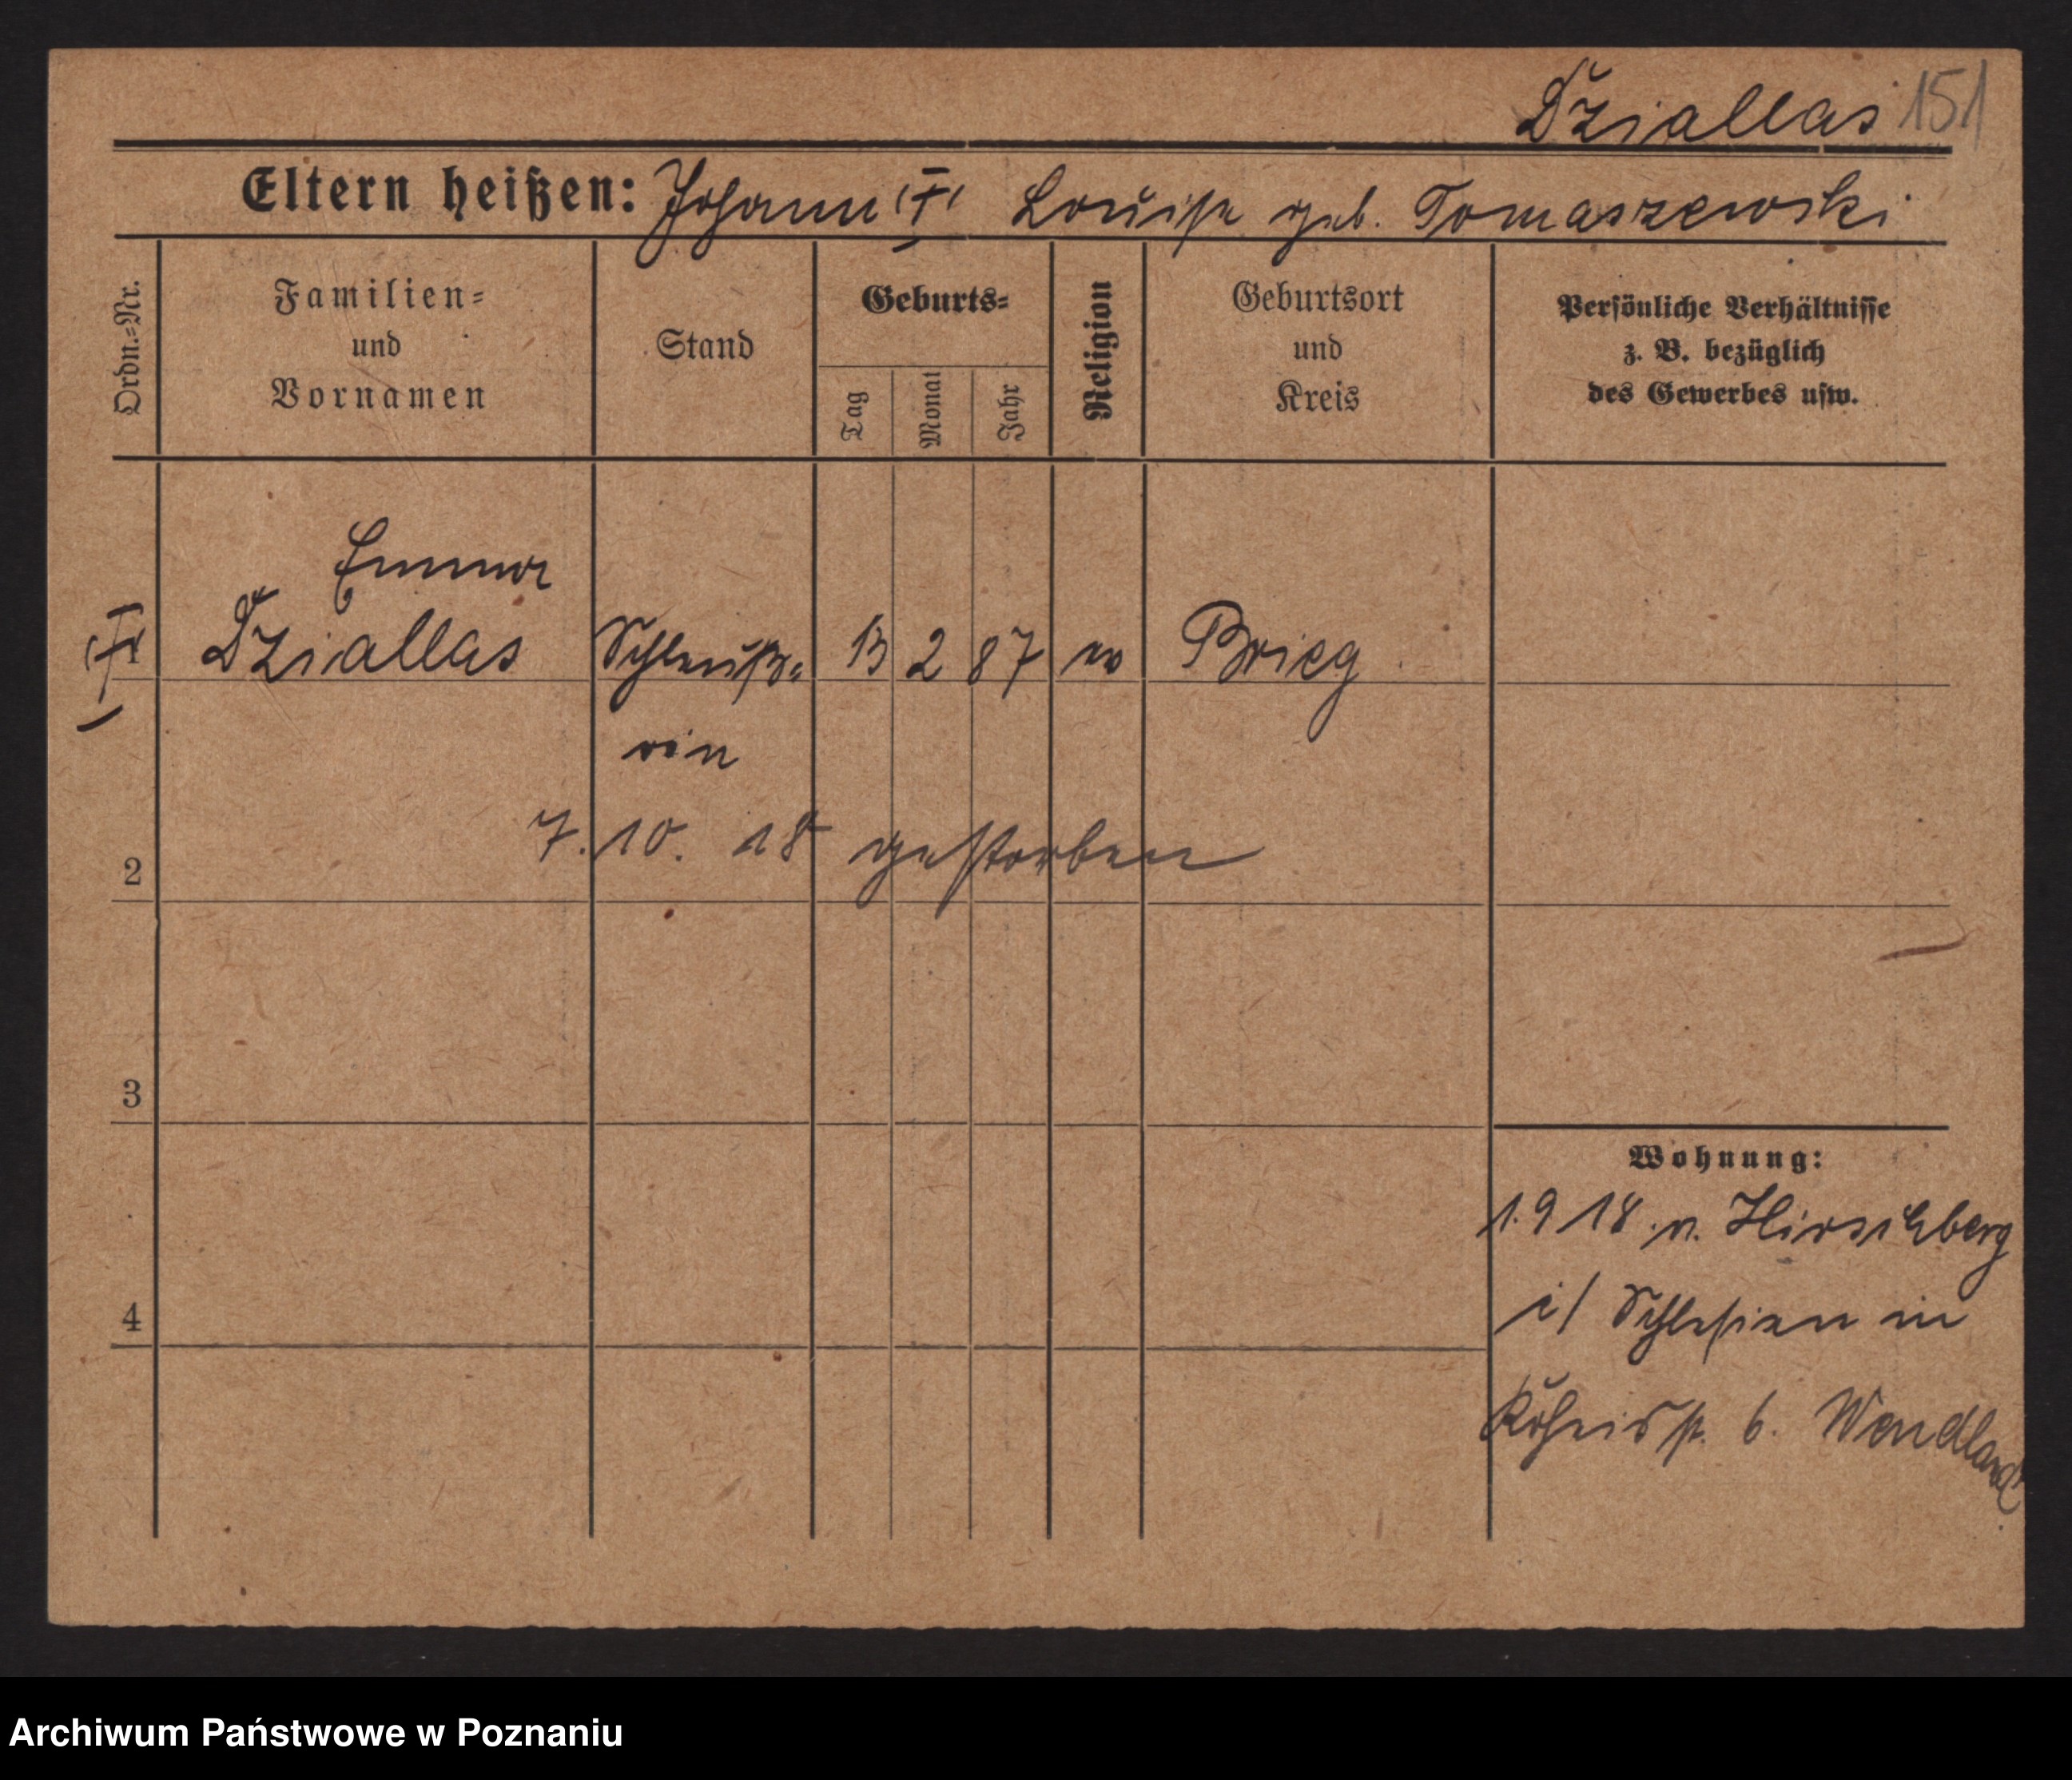 Dziallas 151
Eltern heißen: Johann (†) Louise geb. Tomaszewski
Ordn.=Nr.
Familien=
und
Vornamen
Stand
Geburts=
Tag
Monat
Jahr
Religion
Geburtsort
und
Kreis
Persönliche Verhältnisse
z. B. bezüglich
des Gewerbes usw.
Emma
(†) 1 Dziallas 13 2 87 ev Brieg
rin
7. 10. 18 gestorben
2
3
4
Wohnung:
1.9 18. v. Hirschberg
i/ Schlesien in
6. Wendland
Archiwum Państwowe w Poznaniu